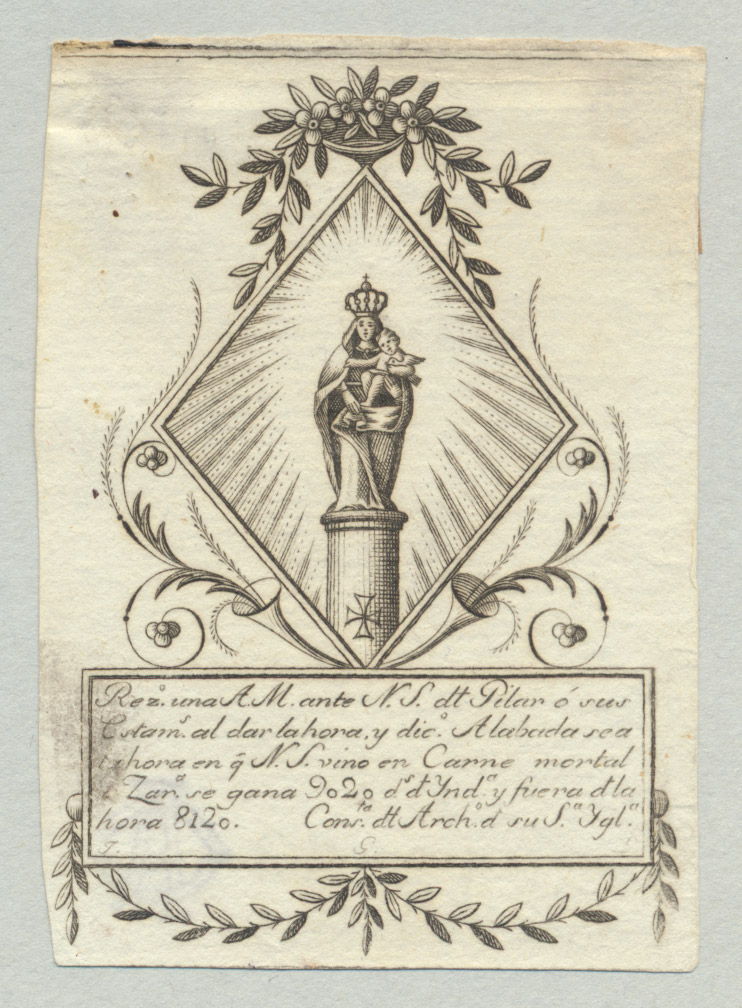 Rez.º una A.M. ante N. S. dtt Pilar ó sus
Estam.s al dar la hora, y dic.º Alabada sea
la hora en q̃ N. S. vino en Carne mortal
Zar.ª se gana 9020 d.s d Ynd.ª y fuera dtla
hora 8120. Cons.ta dtt Arch.º d su S.ª Ygl.ª
G.